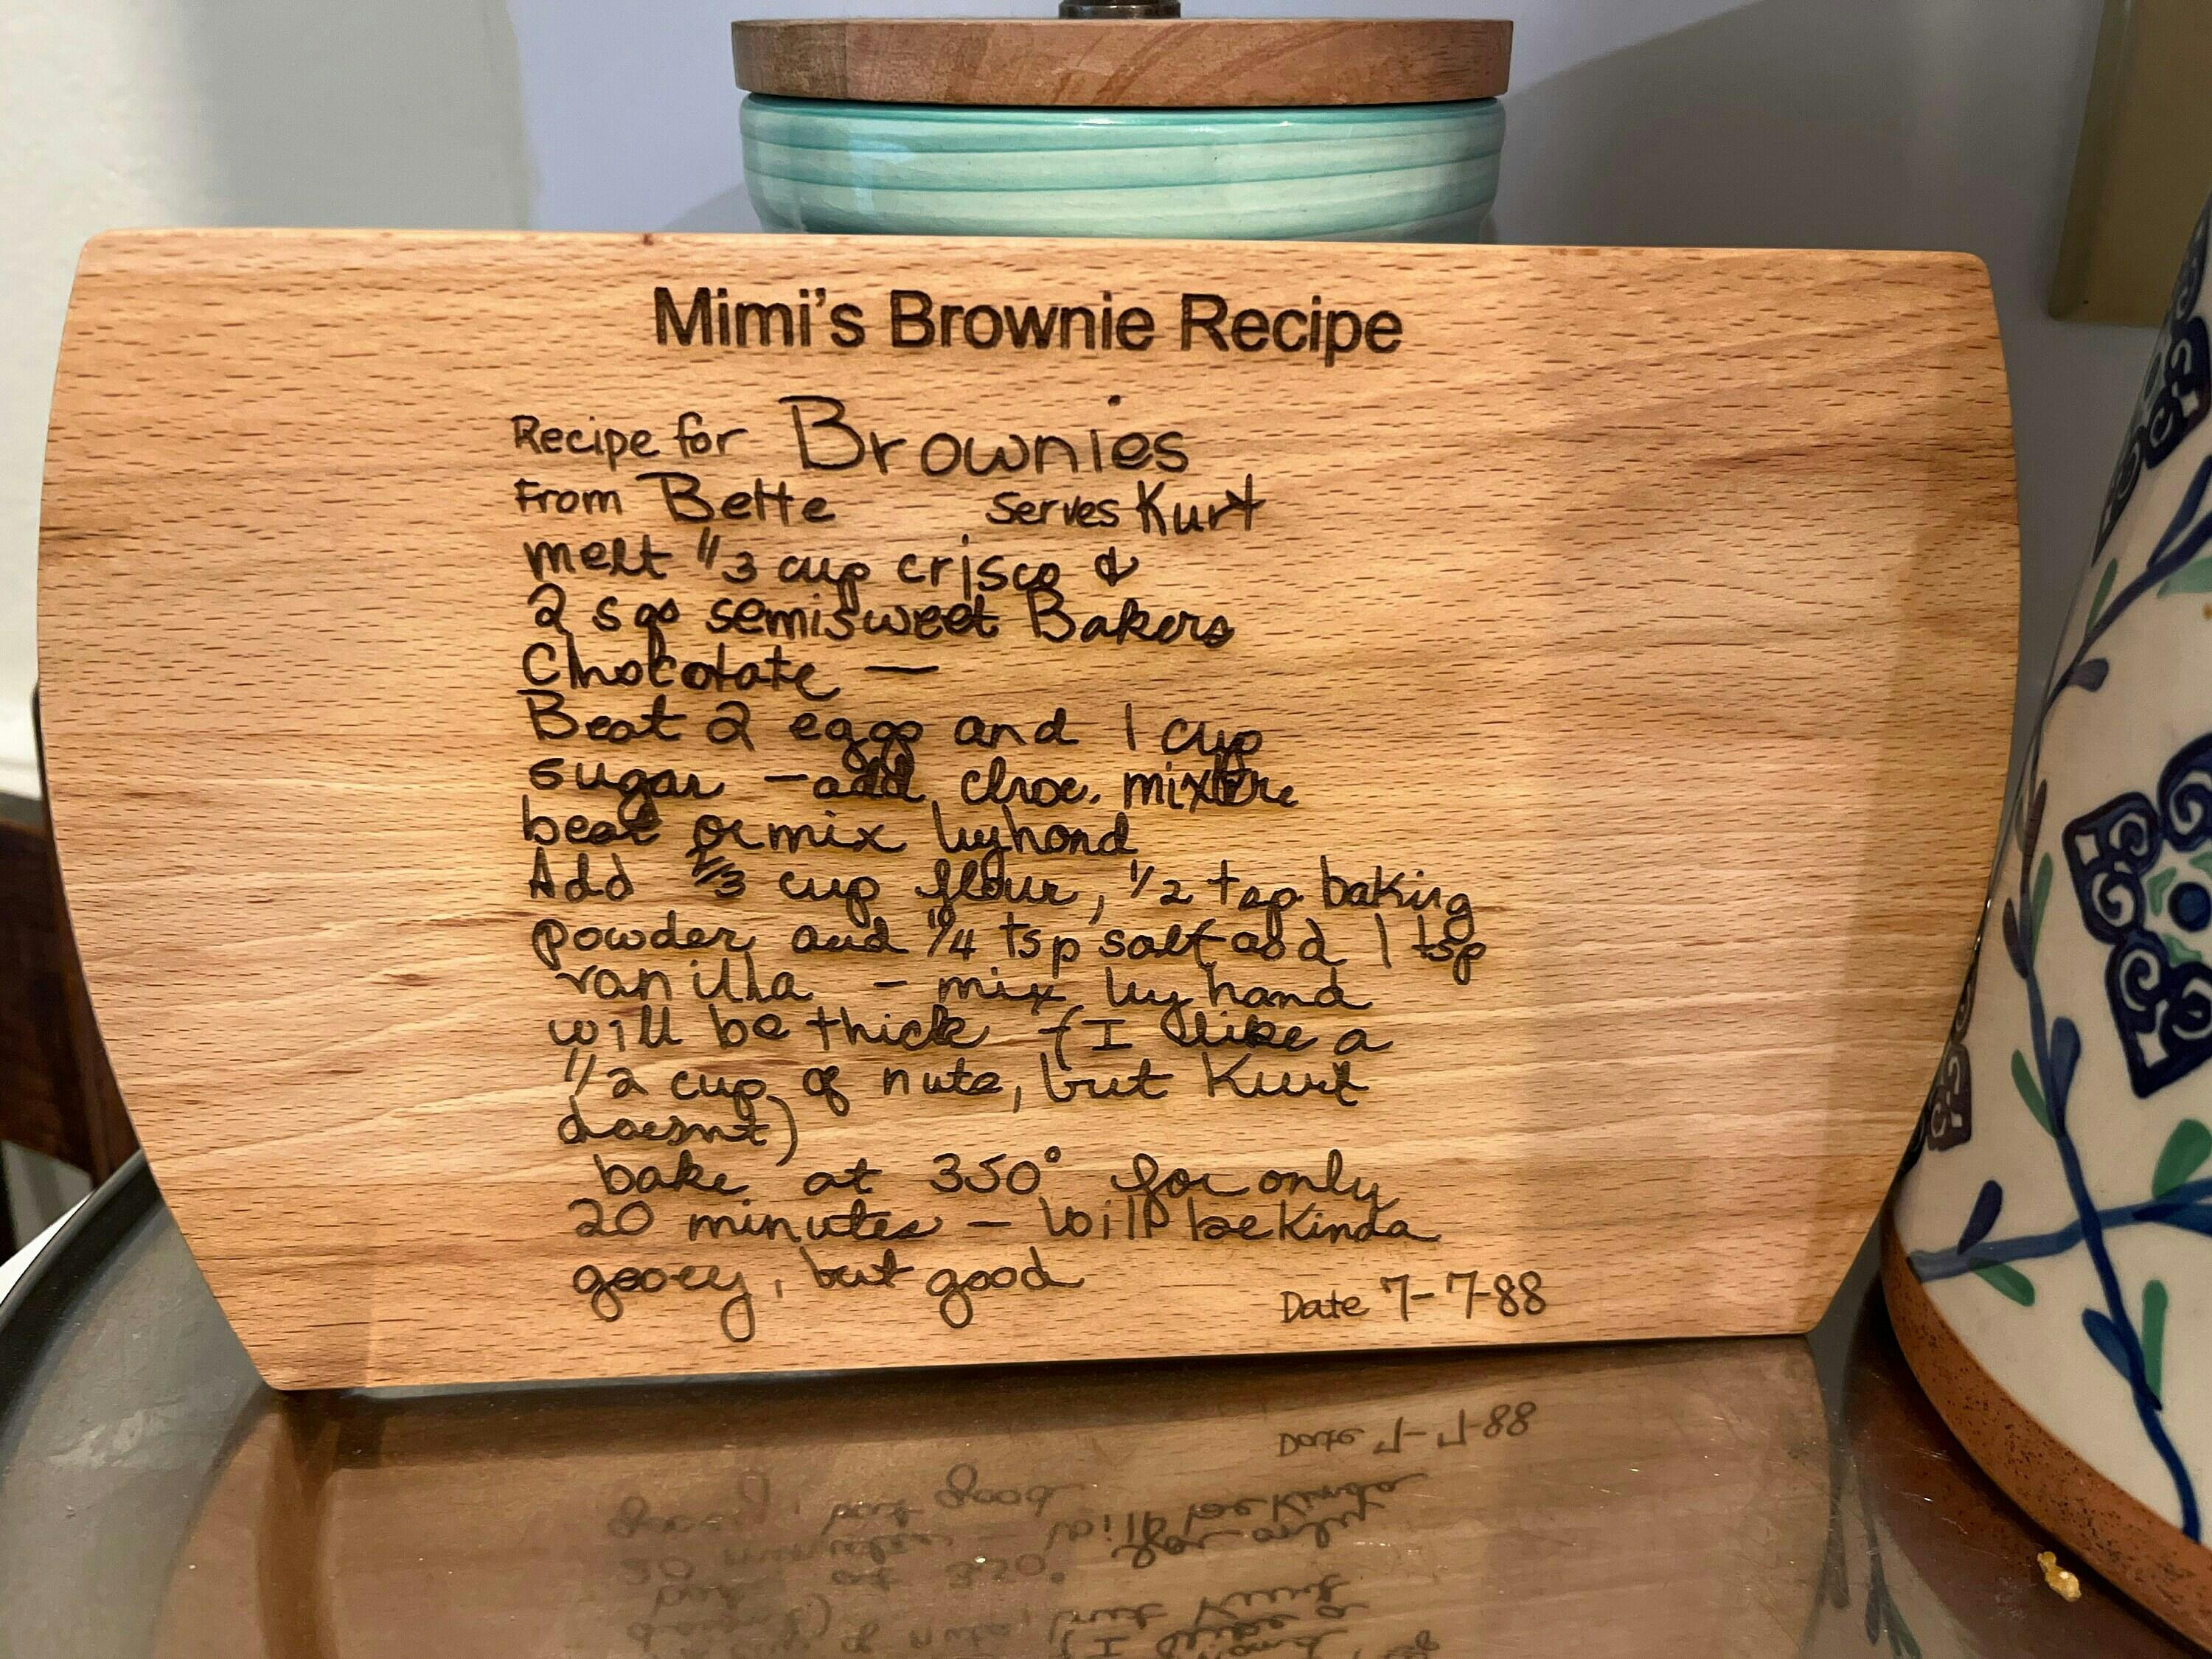 Mimi's Brownie Recipe
Recipe for Brownies
From Bette Serves Kurt
melt 1/3 cup crisco &
2 sqs semisweet Bakers
Chocolate —
Beat 2 eggs and 1 cup
sugar — add choc. mixture
beat or mix by hand
Add 2/3 cup flour, 1/2 tsp baking
powder and 1/4 tsp salt add 1 tsp
vanilla — mix by hand
will be thick (I like a
1/2 cup of nuts, but Kurt
doesnt)
bake at 350° for only
20 minutes — Will be Kinda
gooey, but good
Date 7-7-88